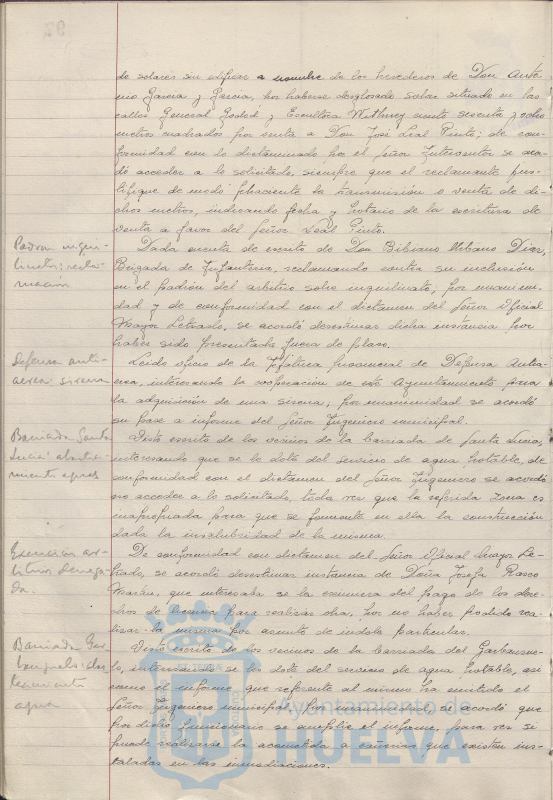 de solares sin edificar a nombre de los herederos de Don Anto-
nio García y García, por haberse desglosado solar situado en las
calles General Goded y Escultora Withney ciento sesenta y ocho
metros cuadrados por venta a Don José Leal Pinto; de con-
formidad con lo dictaminado por el Señor Interventor se acor-
dó acceder a lo solicitado, siempre que el reclamante jus-
tifique de modo fehaciente la transmisión o venta de di-
chos metros, indicando fecha y notario de la escritura de
venta a favor del Señor Leal Pinto.
Padrón inqui-
linato; recla-
mación
Dada cuenta de escrito de Don Bibiano Urbano Díaz,
Brigada de Infantería, reclamando contra su inclusión
en el padrón del arbitrio sobre inquilinato, por unanimi-
dad y de conformidad con el dictamen del Señor Oficial
Mayor Letrado, se acordó desestimar dicha instancia por
haber sido presentada fuera de plazo.
Defensa anti-
aerea sirena
Leido oficio de la Jefatura provincial de Defensa Antiaé-
rea, interesando la cooperación de este Ayuntamiento para
la adquisición de una sirena; por unanimidad se acordó
su pase a informe del Señor Ingeniero municipal.
Barriada Santa
Lucia abasteci-
miento agua
Visto escrito de los vecinos de la barriada de Santa Lucia,
interesando que se la dote del servicio de agua potable, de
conformidad con el dictamen del Señor Ingeniero se acordó
no acceder a lo solicitado, toda vez que la referida zona es
inapropiada para que se fomente en ella la construcción
dada la insalubridad de la misma.
Exención ar-
bitrios denega-
da.
De conformidad con dictamen del Señor Oficial Mayor Le-
trado, se acordó desestimar instancia de Doña Josefa Rasco
Martín, que interesaba se la eximiera del pago de los dere-
chos de licencia para realizar obra, por no haber podido rea-
lizar la misma por asunto de indole particular.
Barriada Gar-
banzuelo: abas-
tecimiento
agua
Visto escrito de los vecinos de la barriada del Garbanzue-
lo, interesando se les dote del servicio de agua potable, así
como el informe que referente al mismo ha emitido el
Señor Ingeniero municipal, por unanimidad se acordó que
por dicho funcionario se amplie el informe, para ver si
puede realizarse la acometida a cañerias que existen ins-
taladas en las inmediaciones.
Ayuntamiento de
HUELVA